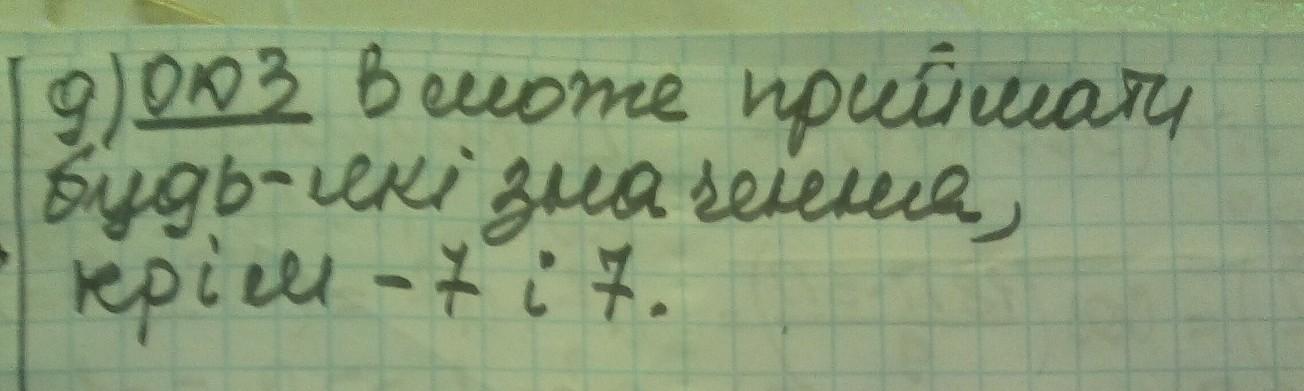 д) ОДЗ в може приймати
будь-які значення,
крім -7 і 7.